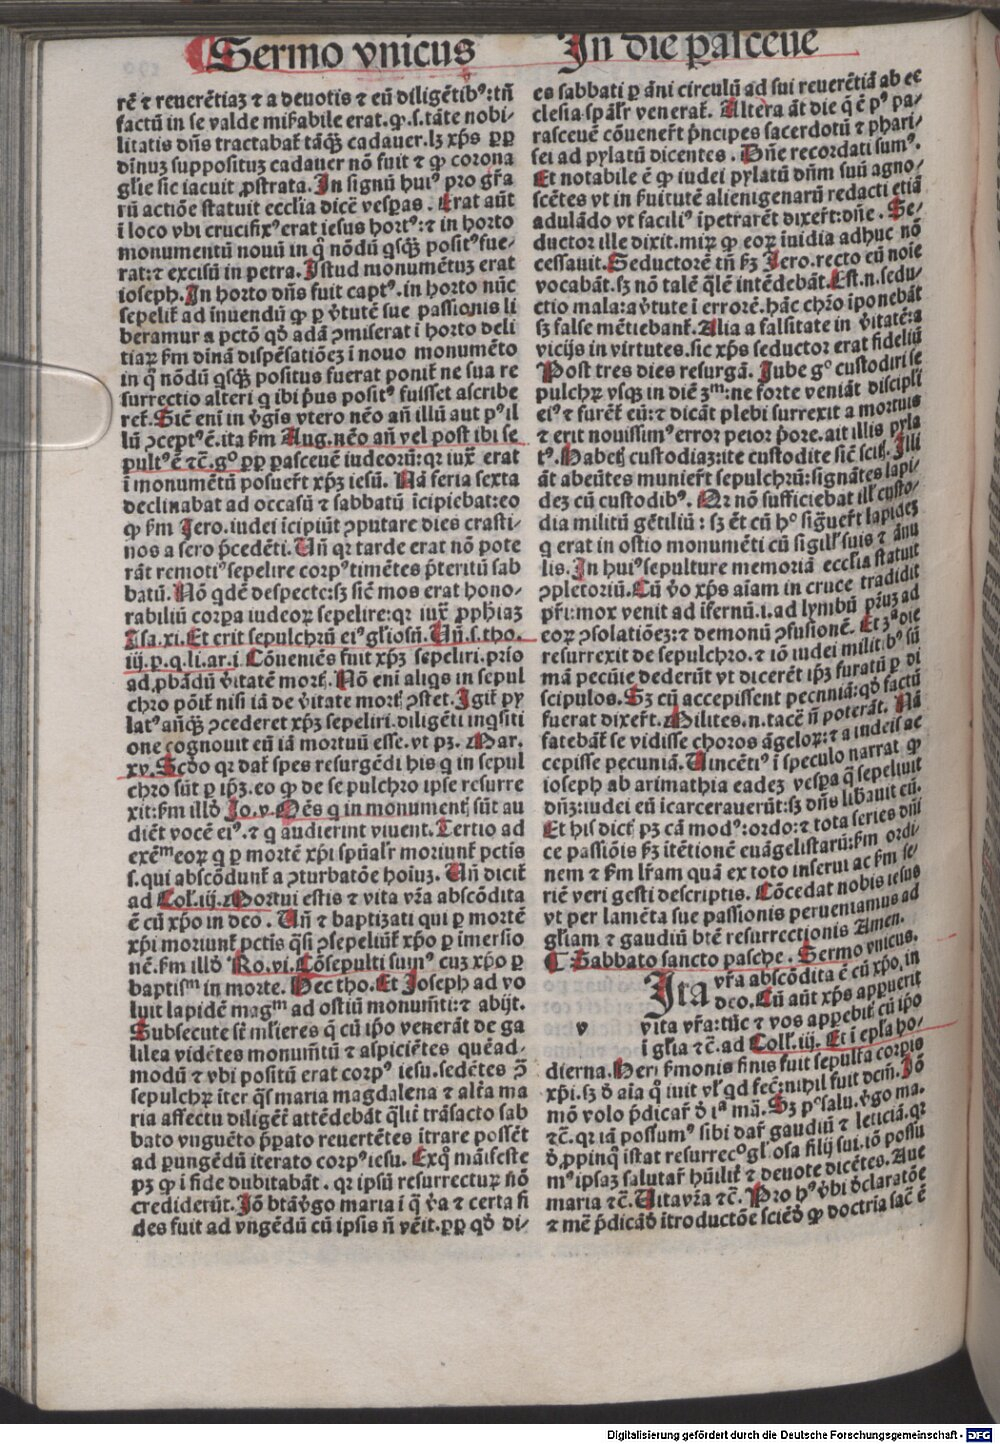 Sermo vnicus In die pasceue
rē ⁊ reuerētiaꝫ ⁊ a deuotis ⁊ eū diligētibꝰ: tn̄
factū in se valde mirabile erat. ꝙ .s. tāte nobi-
litatis dn̄s tractabat̉ tāqꝫ cadauer. lꝫ xp̄s ꝓp
diuinuꝫ suppositum cadauer nō fuit ⁊ ꝙ corona
gl̄ie sic iacuit ꝓstrata. In signū huiꝰ pro gr̄a
rū actiōe statuit ecclīa dicē vesp̄as. Erat aūt
ī loco vbi crucifixꝰ erat iesus hortꝰ: ⁊ in horto
monumentū nouū in q̄ nōdū qsqꝫ positꝰ fue-
rat: ⁊ excisū in petra. Istud monumētuꝫ erat
ioseph. In horto dn̄s fuit captꝰ. in horto nūc
sepelit̉ ad inuendū ꝙ p v̄tutē sue passionis li
beramur a pctō qd̄ adā ꝯmiserat ī horto deli
tiaꝝ ẜm diuinā dispēsatiōeꝫ ī nouo monumēto
in q̄ nōdū qsqꝫ positus fuerat ponit̉ ne sua re
surrectio alteri q ibi p̄us positꝰ fuisset ascribe
ret̉. Sic̄ eni in v̄gis vtero nēo an̄ illū aut pꝰ il
lū ꝯceptꝰ ē. ita ẜm Aug. nēo an̄ vel post ibi se
pultꝰ ē ⁊c̄. gͦ ꝓp pasceuē iudeoꝝ: qr iuxͣ erat
ī monumētū posuer̄t xp̄ꝫ iesū. Nā feria sexta
declinabat ad occasū ⁊ sabbatū īcipiebat: eo
ꝙ ẜm Jero. iudei īcipiūt ꝯputare dies crasti-
nos a sero p̄cedēti. Un̄ qr tarde erat nō pote
rāt remotiꝰ sepelire corpꝰ timētes p̄teritū sab
batū. Nō qdē despecte: sꝫ sic̄ mos erat hono-
rabiliū corpa iudeoꝝ sepelire: qr iuxͣ ꝓph̄iaꝫ
Isa. xi. Et erit sepulchrū eiꝰ gl̄iosū. Un̄. s. tho.
iij. p. q. li. ar. i. Cōueniēs fuit xp̄ꝫ sepeliri. prīo
ad ꝓbādū v̄itatē mortꝭ. Nō eni aliqs in sepul
chro pōit̉ nisi iā de v̄itate mortꝭ ꝯstet. Igit̉ py
latꝰ an̄qꝫ ꝯcederet xp̄ꝫ sepeliri. diligēti inqsiti
one cognouit eū iā mortuū esse. vt pꝫ. Mar.
xv. Scd̄o qr dat̉ spes resurgēdi his q in sepul
chro sūt p ip̄ꝫ. eo ꝙ de sepulchro ipse resurre
xit: ẜm illd̄ Jo. v. Oēs q in monumentꝭ sūt au
diēt vocē eiꝰ. ⁊ q audierint viuent. Tertio ad
exēᵐ eoꝝ q p mortē xp̄i spūal̄r moriunt̉ pctis
s. qui abscōdunt̉ a ꝯturbatōe hoiuꝫ. Un̄ dicit̉
ad Col̄. iij. Mortui estis ⁊ vita vr̄a abscōdita
ē cū xp̄o in deo. Un̄ ⁊ baptizati qui p mortē
xp̄i moriunt̉ pctis q̄si ꝯsepeliūt̉ xp̄o p īmersio
nē. ẜm illd̄ Ro. vi. Cōsepulti sumꝰ cuꝫ xp̄o p
baptisᵐ in morte. Hec tho. Et Joseph ad vo
luit lapidē magᵐ ad ostiū monum̄ti: ⁊ abijt.
Subsecute sūt m̄lieres q̄ cū ip̄o venerāt de ga
lilea vidētes monum̄tū ⁊ aspiciētes quēad-
modū ⁊ vbi positū erat corpꝰ iesu. sedētes ꝯ̄
sepulchꝝ īter q̄s maria magdalena ⁊ alt̄a ma
ria affectu diligēt̉ attēdebāt qlit̉ trāsacto sab
bato vnguēto p̄pato reuertētes ītrare possēt
ad pungēdū iterato corpꝰ iesu. Exqͦ māifeste
pꝫ ꝙ ī fide dubitabāt. qr ipsū resurrecturꝝ nō
crediderūt. Jō btāv̄go maria ī q̄ v̄a ⁊ certa fi
des fuit ad vngēdū cū ipsis n̄ vēit. ꝓp qd̄ di-
es sabbati p āni circulū ad sui reuerētiā ab ec
clesia spāl̄r venerat̉. Altera āt die q̄ ē pꝰ pa-
rasceuē cōuener̄t p̄ncipes sacerdotū ⁊ phari-
sei ad pylatū dicentes. Dn̄e recordati sumꝰ.
Et notabile ē ꝙ iudei pylatū dn̄m suū agno-
scētes vt in ẜuitutē alienigenarū redacti etiā
adulādo vt faciliꝰ īpetrarēt dixer̄t: dn̄e. Se-
ductor ille dixit. miꝝ ꝙ eoꝝ īuidia adhuc nō
cessauit. Seductorē tn̄ ẜꝫ Jero. recto eū noīe
vocabāt. sꝫ nō talē q̄lē intēdebāt. Est. n. sedu-
ctio mala: a v̄tute ī errorē. hāc chr̄o īponebāt
sꝫ false mētiebant̉. Alia a falsitate in v̄itatē: a
vicijs in virtutes. sic xp̄s seductor erat fideliū
Post tres dies resurgā. Jube gͦ custodiri se
pulchꝝ vsqꝫ in diē 3ᵐ: ne forte veniāt discipl̄i
eiꝰ ⁊ furēt̉ eū: ⁊ dicāt plebi surrexit a mortuis
⁊ erit nouissimꝰ error peior p̄ore. ait illis pyla
tꝰ. Habetꝭ custodiaꝫ: ite custodite sic̄ scitꝭ. Illi
āt abeūtes munier̄t sepulchrū: signātes lapi-
deꝫ cū custodibꝰ. Qr nō sufficiebat ill̄ custo-
dia militū gētiliū: sꝫ ēt cū hͦ sig̈uer̄t lapideꝫ
q erat in ostio monumēti cū sigill̄ suis ⁊ ānu
lis. In huiꝰ sepulture memoriā ecclīa statuit
ꝯpletoriū. Cū v̄o xp̄s aīam in cruce tradidit
pr̄i: mox venit ad īfernū. i. ad lymbū pr̄uꝫ ad
eoꝝ ꝯsolatiōeꝫ: ⁊ demonū ꝯfusionē. Et 3ᵃ die
resurrexit de sepulchro. ⁊ iō iudei militibꝰ sū
mā pecūie dederūt vt dicerēt ip̄ꝫ furatū p di
scipulos. Sꝫ cū accepissent pecuniā: qd̄ factū
fuerat dixer̄t. Milites. n. tacē n̄ poterāt. Nā
fatebāt̉ se vidisse choros āgeloꝝ: ⁊ a iudeis ac
cepisse pecuniā. Uincētiꝰ ī speculo narrat ꝙ
ioseph ab arimathia eadeꝫ vesp̄a q̄ sepeliuit
dn̄ꝫ: iudei eū īcarcerauerūt: sꝫ dn̄s lib̄auit eū.
Et his dictꝭ pꝫ cā modꝰ: ordo: ⁊ tota series dn̄i
ce passiōis ẜꝫ itētionē euāgelistarū: ẜm ordi-
nem ⁊ ẜm lr̄am quā ex toto inserui ac ẜm se-
riē veri gesti descriptis. Cōcedat nobis iesus
vt per lamēta sue passionis perueniamus ad
gl̄iam ⁊ gaudiū btē resurrectionis Amen.
Sabbato sancto pasche. Sermo vnicus.
Ita vr̄a abscōdita ē cū xp̄o, in
deo. Cū aūt xp̄s appuerit
v vita vr̄a: tūc ⁊ vos appebitꝭ cū ip̄o
ī gl̄ia ⁊c̄. ad Coll̄. iij. Et ī ep̄la ho-
dierna. Heri ẜmonis finis fuit sepulta corpis
xp̄i. sꝫ d̄ aīa qͦ iuit vl̄ qd fec̄: nihil fuit dcm̄. Jō
mō volo p̄dicar̄ d̄ iᵃ mā. Sꝫ pͦ salu. v̄go ma.
⁊c̄. qr iā possumꝰ sibi dar̄ gaudiū ⁊ leticiā. qr
d̄ ꝓpinqͦ īstat resurrecͦ gl̄osa filij sui. iō possu
mꝰ ipsaꝫ salutar̄ hūilit̉ ⁊ deuote dicētes. Aue
maria ⁊c̄. Uita vr̄a ⁊c̄. Pro hꝰ v̄bi d̄claratōe
⁊ mē p̄dicād̄ ītroductōe sciēd̄ ꝙ doctria sac̄ ē
Digitalisierung gefördert durch die Deutsche Forschungsgemeinschaft - DFG